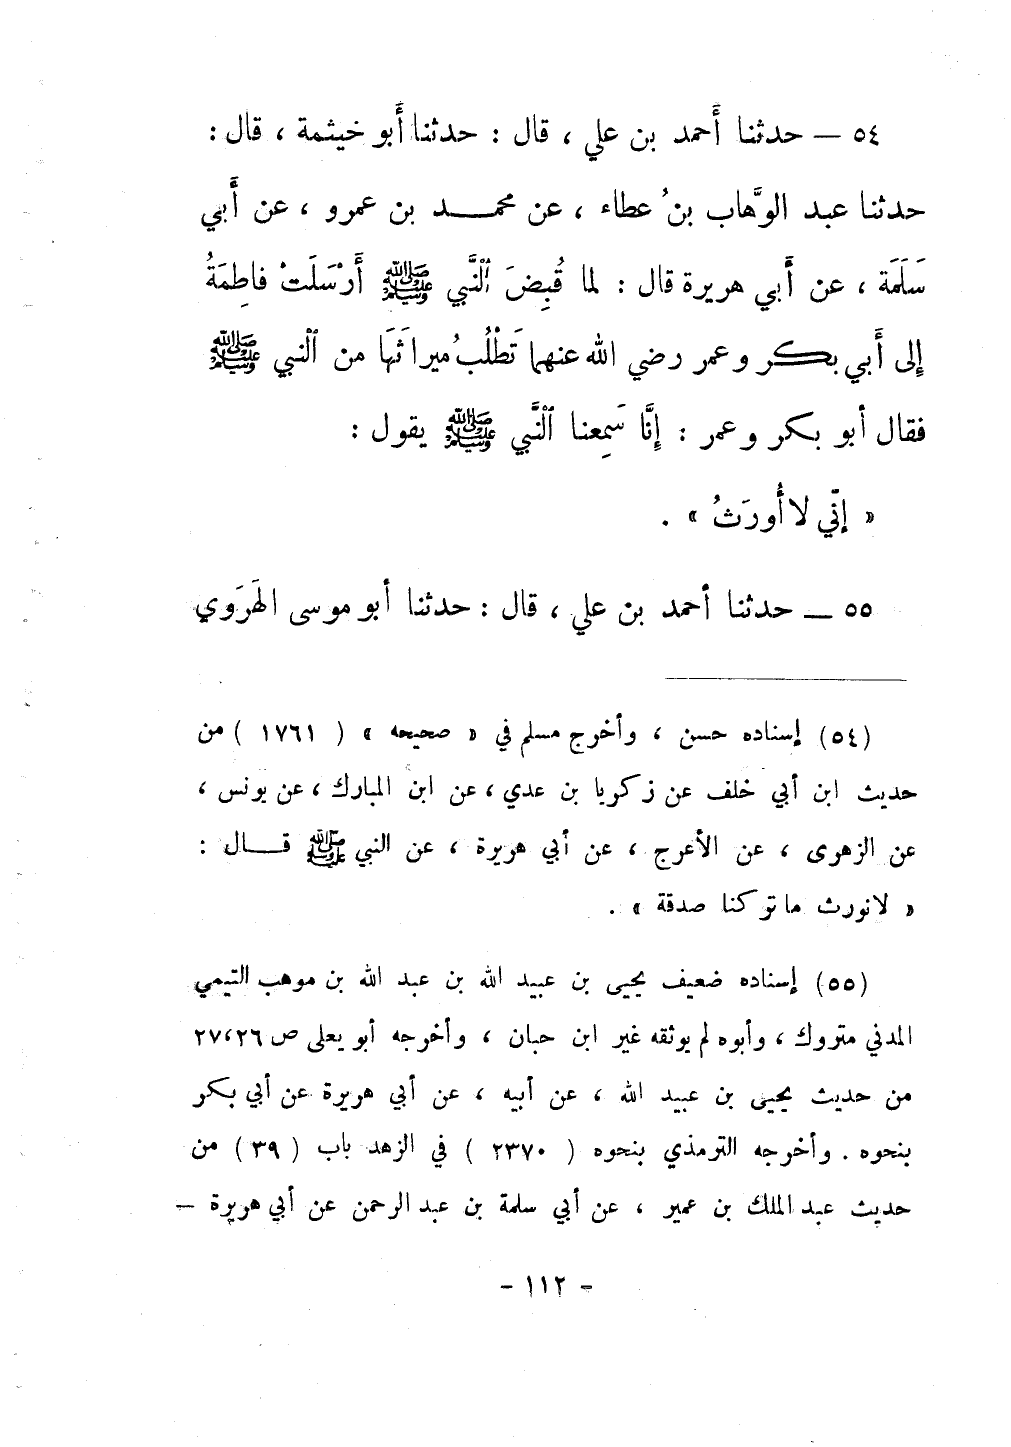 ٥٤ — حدثنا أَحمد بن علي ، قال : حدثنا أَبو خيثمة ، قال :
حدثنا عبد الوهَّاب بنُ عطاء ، عن محمـــد بن عمرو ، عن أَبي
سَلَمَة ، عن أَبي هريرة قال : لما قُبِضَ ٱلنَّبي ﷺ أَرْسَلَتْ فاطِمَةُ
إلى أَبي بكر وعمر رضي الله عنهما تَطْلُبُ ميراثَهَا من ٱلنبي ﷺ
فقال أبو بكر وعمر : إنَّا سَمِعنا ٱلنَّبي ﷺ يقول :
« إنّي لا أُورَثُ » .
٥٥ — حدثنا أحمد بن علي ، قال : حدثنا أبو موسى الهَرَوي
(٥٤) إسناده حسن ، وأخرج مسلم في « صحيحه » ( ١٧٦١ ) من
حديث ابن أبي خلف عن زكريا بن عدي ، عن ابن المبارك ، عن يونس ،
عن الزهرى ، عن الأعرج ، عن أبي هريرة ، عن النبي ﷺ قـــال :
« لانورث ما تركنا صدقة » .
(٥٥) إسناده ضعيف يحيى بن عبيد الله بن عبد الله بن موهب التيمي
المدني متروك ، وأبوه لم يوثقه غير ابن حبان ، وأخرجه أبو يعلى ص ٢٧،٢٦
من حديث يحيى بن عبيد الله ، عن أبيه ، عن أبي هريرة عن أبي بكر
بنحوه . وأخرجه الترمذي بنحوه ( ٢٣٧٠ ) في الزهد باب ( ٣٩ ) من
حديث عبد الملك بن عمير ، عن أبي سلمة بن عبد الرحمن عن أبي هريرة —
- ١١٢ -